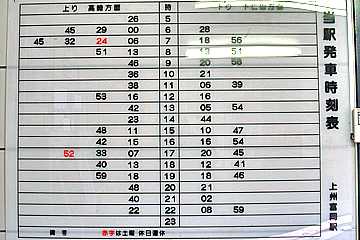 上り 高崎方面 時 下り 下仁田方面
26 5
45 29 00 6 28
45 32 24 06 7 18 56
51 13 8 13 51
46 9 20 58
36 10 21
38 11 06 39
53 16 12 16
42 13 05 54
23 14 44
48 11 15 10 47
42 15 16 16 54
52 33 07 17 20 45
40 13 18 12 41
59 18 18 46
48 20 21
40 21 02
22 22 08 59
23
備考 赤字は土曜・休日運休
当駅発車時刻表
上州富岡駅